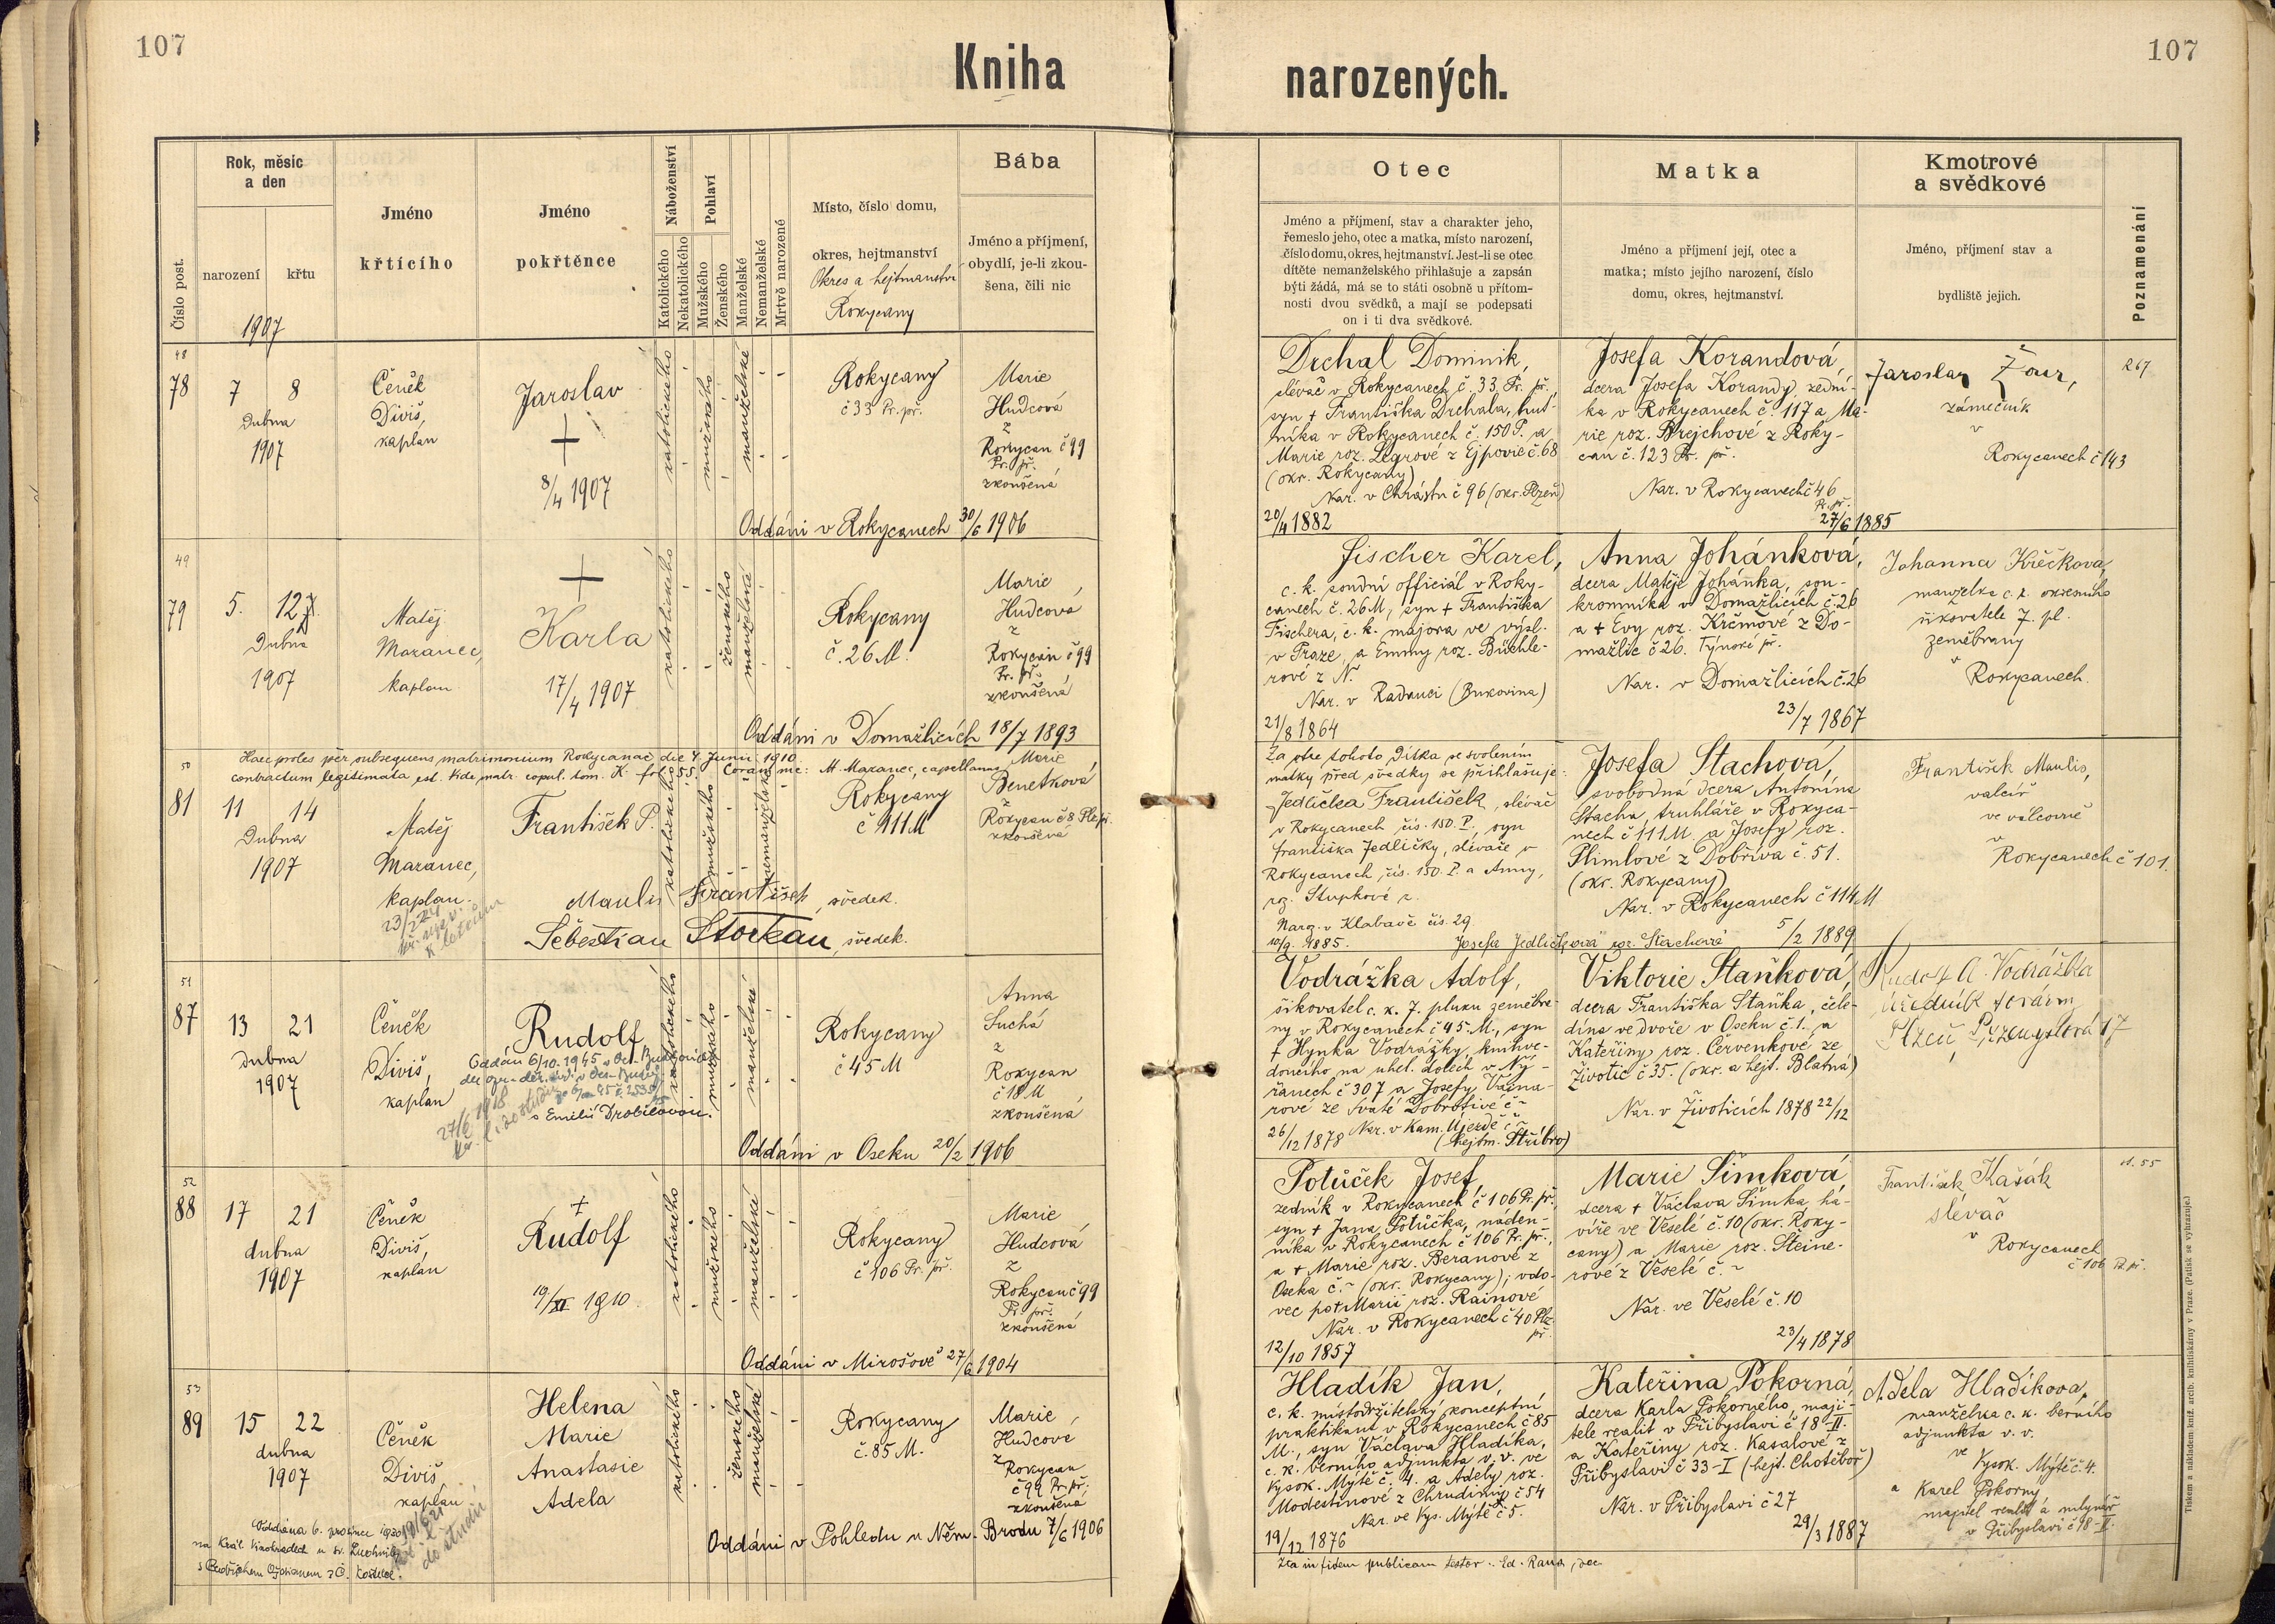 107
107
Kniha
narozených.
Číslo post.
Rok, měsíc
a den
narození
křtu
1907
Jméno
křtícího
Jméno
pokřtěnce
Náboženství
Katolického
Nekatolického
Pohlaví
Mužského
Ženského
Manželské
Nemanželské
Mrtvě narozené
Místo, číslo domu,
okres, hejtmanství
Okres a hejtmanství
Rokycany
Bába
Jméno a příjmení,
obydlí, je-li zkou-
šena, čili nic
Otec
Jméno a příjmení, stav a charakter jeho,
řemeslo jeho, otec a matka, místo narození,
číslo domu, okres, hejtmanství. Jest-li se otec
dítěte nemanželského přihlašuje a zapsán
býti žádá, má se to státi osobně u přítom-
nosti dvou svědků, a mají se podepsati
on i ti dva svědkové.
Matka
Jméno a příjmení její, otec a
matka; místo jejího narození, číslo
domu, okres, hejtmanství.
Kmotrové
a svědkové
Jméno, příjmení stav a
bydliště jejich.
Poznamenání
48
78
7 8
Dubna
1907
Čeněk
Diviš,
kaplan
Jaroslav
8/4 1907
katolického
mužského
manželské
Rokycany
č 33 Pr. př.
Marie
Hudcová
z
Rokycan č 99
Pr. př.
zkoušená
Oddáni v Rokycanech 30/6 1906
Drchal Dominik,
slévač v Rokycanech č. 33 Pr. př.,
syn + Františka Drchala, hut-
níka v Rokycanech č. 150 P. a
Marie roz. Legrové z Ejpovic č. 68
(okr. Rokycany)
Nar. v Chrástu č 96 (okr. Plzeň)
20/4 1882
Josefa Korandová,
dcera Josefa Korandy, zední-
ka v Rokycanech č. 117 a Ma-
rie roz. Brejchové z Roky-
can č. 123 Pr. př.
Nar. v Rokycanech č 46
Pr. př.
27/6 1885
Jaroslav
zámečník
v
Rokycanech č 143
49
79
5. 17.
Dubna
1907
Matěj
Mazanec,
kaplan
Karla
17/4 1907
katolického
ženského
manželské
Rokycany
č. 26 M.
Marie
Hudcová
z
Rokycan č 99
Pr. př.
zkoušená
Oddáni v Domažlicích 18/7 1893
Fischer Karel,
c. k. soudní officiál v Roky-
canech č. 26 M, syn + Františka
Fischera, c. k. majora ve výsl.
v Praze, a Emmy roz. Büchle-
rové z N.
Nar. v Radauci (Bukovina)
21/8 1864
Anna Johánková,
dcera Matěje Johánka, sou-
kromníka v Domažlicích č. 26
a + Evy roz. Krčmové z Do-
mažlic č 26. Týnské př.
Nar. v Domažlicích č. 26
23/7 1867
Johanna Křečková,
manželka c. k. okresního
šikovatele 7. pl.
zeměbrany
v
Rokycanech.
Haec proles per subsequens matrimonium Rokycanae die 4. Junii 1910
contractum legitimata est. Vide matr. copul. tom. K. fol. 55. Coram me: M. Mazanec, capellanus
50
81
11 14
Dubna
1907
Matěj
Mazanec,
kaplan.
František P.
katolického
mužského
nemanželské
Rokycany
č 111 M
Marie
Benetková
z
Rokycan č 8 Plz. př.
zkoušená
Maulis František, svědek.
Šebestian Štorkan, svědek.
Za otce tohoto dítka se svolením
matky před svědky se přihlašuje:
Jedlička František, slévač
v Rokycanech čís. 150. P., syn
Františka Jedličky, slévače v
Rokycanech, čís. 150. P. a Anny,
roz. Stupkové
Naroz. v Klabavě čís. 29
10/9. 1885.
Josefa Jedličková roz. Stachová
Josefa Stachová,
svobodná dcera Antonína
Stacha, truhláře v Rokyca-
nech č 111 M a Josefy roz.
Šlimlové z Dobříva č. 51.
(okr. Rokycany)
Nar. v Rokycanech č 114 M
5/2 1889
František Maulis,
valcíř
ve válcovně
v
Rokycanech č 101.
51
87
13 21
dubna
1907
Čeněk
Diviš,
kaplan
Rudolf
s Emilií Drobilovou.
katolického
mužského
manželské
Rokycany
č 45 M
Anna
Suchá
z
Rokycan
č 18 M
zkoušená
Oddáni v Oseku 20/2 1906
Vodrážka Adolf,
šikovatel c. k. 7. pluku zeměbra-
ny v Rokycanech č 45 M., syn
+ Hynka Vodrážky, knihve-
doucího na uhel. dolech v Ný-
řanech č 307 a Josefy Vacna-
rové ze Svaté Dobrotivé č ~
Nar. v Kam. Újezdě č ~
26/12 1878 (hejtm. Stříbro)
Viktorie Staňková,
dcera Františka Staňka, čele-
dína ve dvoře v Oseku č. 1. a
Kateřiny roz. Červenkové ze
Životic č 35. (okr. a hejt. Blatná)
Nar. v Životicích 1878 22/12
Rudolf A. Vodrážka
Plzeň, Přemyslova 17
52
88
17 21
dubna
1907
Čeněk
Diviš,
kaplan
Rudolf
19/XI 1910
katolického
mužského
manželské
Rokycany
č 106 Pr. př.
Marie
Hudcová
z
Rokycan č 99
Pr. př.
zkoušená
Oddáni v Mirošově 27/6 1904
Potůček Josef,
zedník v Rokycanech č 106 Pr. př.,
syn + Jana Potůčka, náden-
níka v Rokycanech č 106 Pr. př.,
a + Marie roz. Beranové z
Oseka č. ~ (okr. Rokycany); vdo-
vec po + Marii roz. Rainové
Nar. v Rokycanech č 40 Plz.
př.
12/10 1857
Marie Šimková,
dcera + Václava Šimka, ha-
víře ve Veselé č. 10 (okr. Roky-
cany) a Marie roz. Šteine-
rové z Veselé č. ~
Nar. ve Veselé č. 10
23/4 1878
František Kašák
slévač
v
Rokycanech
č 106 Pr. př.
53
89
15 22
dubna
1907
Čeněk
Diviš,
kaplan
Helena
Marie
Anastasie
Adela
katolického
ženského
manželské
Rokycany
č. 85 M.
Marie
Hudcová
z
Rokycan
č 99 Pr. př.
zkoušená
Oddáni v Pohledu u Něm. Brodu 7/6 1906
Hladík Jan,
c. k. místodržitelský konceptní
praktikant v Rokycanech č 85
M., syn Václava Hladíka,
c. k. berního adjunkta v. v. ve
Vysok. Mýtě č. 4. a Adely roz.
Modestinové z Chrudimi č 54
Nar. ve Vys. Mýtě č 5.
19/12 1876
Kateřina Pokorná,
dcera Karla Pokorného, maji-
tele realit v Přibyslavi č 18-II.
a Kateřiny roz. Kasalové z
Přibyslavi č 33-I (hejt. Chotěboř)
Nar. v Přibyslavi č 27
29/3 1887
Adela Hladíkova,
manželka c. k. berního
adjunkta v. v.
ve
Vysok. Mýtě č. 4.
a Karel Pokorný,
majitel realit a mlynář
v Přibyslavi č 18-II.
Ita in fidem publicam testor: Ed. Rana, dec.
Tiskem a nákladem kníž. arcib. knihtiskárny v Praze. (Patisk se vyhrazuje.)